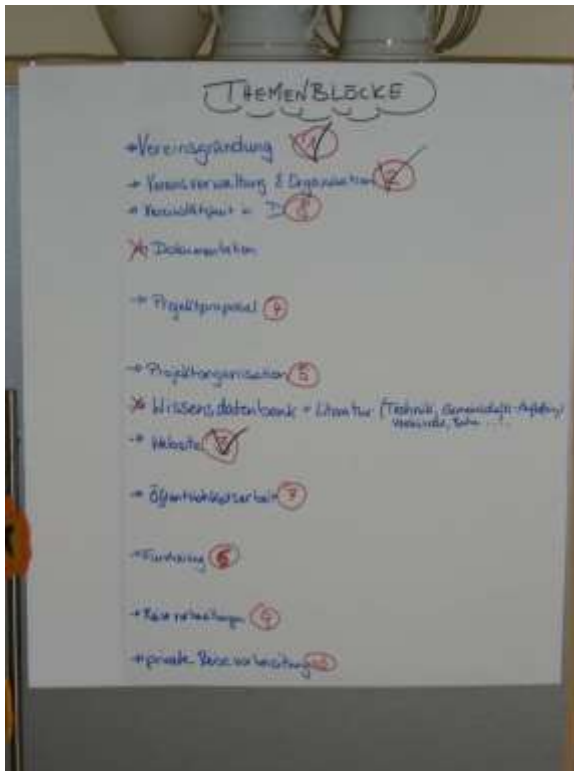 THEMENBLÖCKE
→ Vereinsgründung 1
→ Vereinsverwaltung & Organisation 2
→ in D 8
Dokumentation
→ Projektproposal 4
→ Projektorganisation 5
Wissensdatenbank - Literatur (Technik, Gemeinschafts-
→ Website 3
→ Öffentlichkeitsarbeit 7
→ Fundraising 6
→ Reisevorbereitungen 9
→ private Reisevorbereitung 10